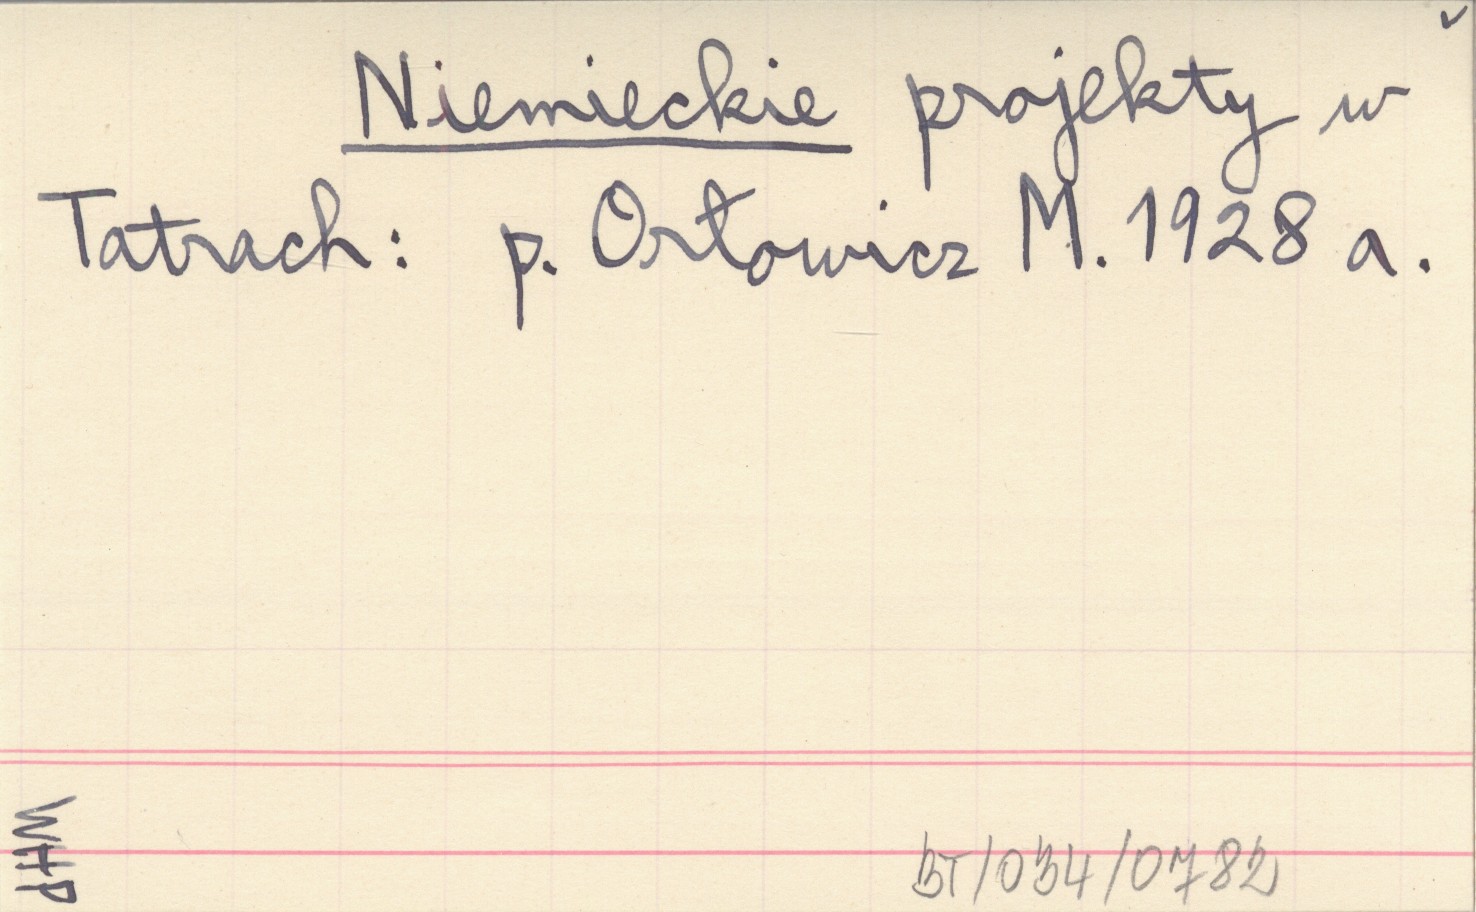 Niemieckie projekty w
Tatrach: p. Orłowicz M. 1928 a.
WHP
BT/034/0782